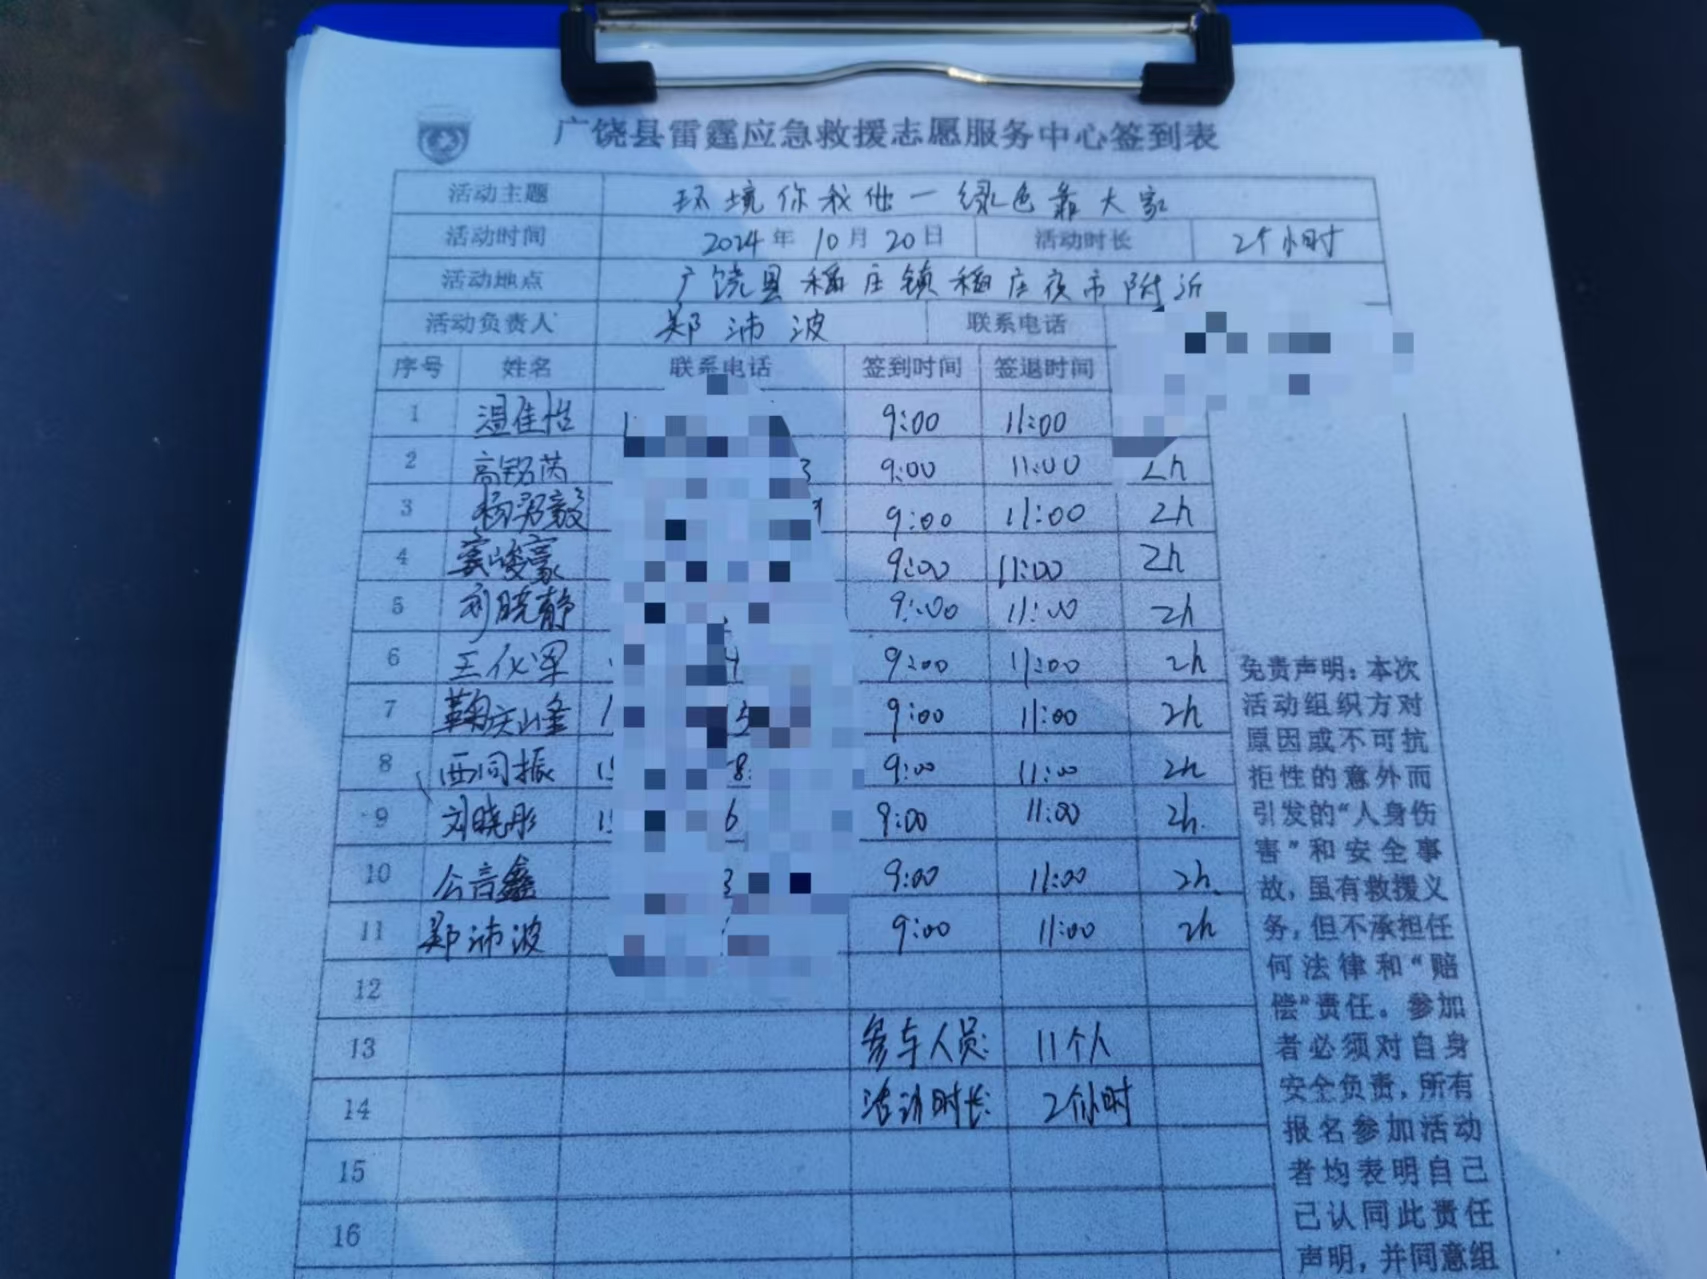 广饶县雷霆应急救援志愿服务中心签到表
活动主题 环境你我他一绿色靠大家
活动时间 2024年10月20日 活动时长 2个小时
活动地点 广饶县稻庄镇稻庄夜市附近
活动负责人 郑沛波 联系电话
序号 姓名 联系电话 签到时间 签退时间
1 温佳怡 1 9:00 11:00
2 高铭芮 3 9:00 11:00 2h
3 9:00 11:00 2h
4 窦峻豪 9:00 11:00 2h
5 刘晓静 9:00 11:00 2h
6 9:00 11:00 2h
7 鞠庆峰 1 5 9:00 11:00 2h
8 西同振 15 8 9:00 11:00 2h
9 刘晓彤 15 6 9:00 11:00 2h.
10 公言鑫 3 9:00 11:00 2h.
11 郑沛波 9:00 11:00 2h
12
13 参与人员: 11个人
14 活动时长: 2个小时
15
16
免责声明：本次
活动组织方对
原因或不可抗
拒性的意外而
引发的“人身伤
害”和安全事
故，虽有救援义
务，但不承担任
何法律和“赔
偿”责任。参加
者必须对自身
安全负责，所有
报名参加活动
者均表明自己
已认同此责任
声明，并同意组